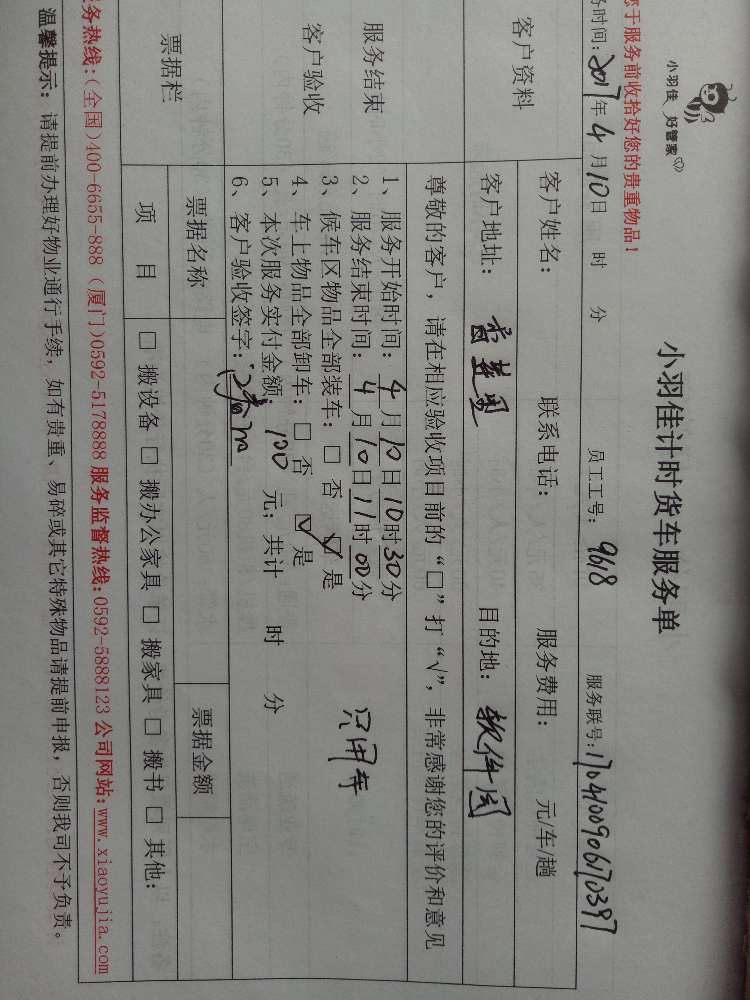 您于服务前收拾好您的贵重物品！
小羽佳 好管家
小羽佳计时货车服务单
务时间：2017年4月10日 时 分 员工工号：9618 服务联号：1704100906170397
客户资料
客户姓名： 联系电话： 服务费用： 元/车/趟
客户地址： 目的地：软件园
服务结束
客户验收
尊敬的客户，请在相应验收项目前的“□”打“√”，非常感谢您的评价和意见
1、服务开始时间：4月10日10时30分
2、服务结束时间：4月10日11时00分
3、候车区物品全部装车：□ 否 ☑ 是
只用车
4、车上物品全部卸车：□ 否 ☑ 是
5、本次服务实付金额：100 元；共计 时 分
6、客户验收签字：
票据栏
票据名称 票据金额
项目 □ 搬设备 □ 搬办公家具 □ 搬家具 □ 搬书 □ 其他：
服务热线：(全国)400-6655-888 (厦门)0592-5178888 服务监督热线：0592-5888123 公司网站：www.xiaoyujia.com
温馨提示：请提前办理好物业通行手续，如有贵重、易碎或其它特殊物品请提前申报，否则我司不予负责。